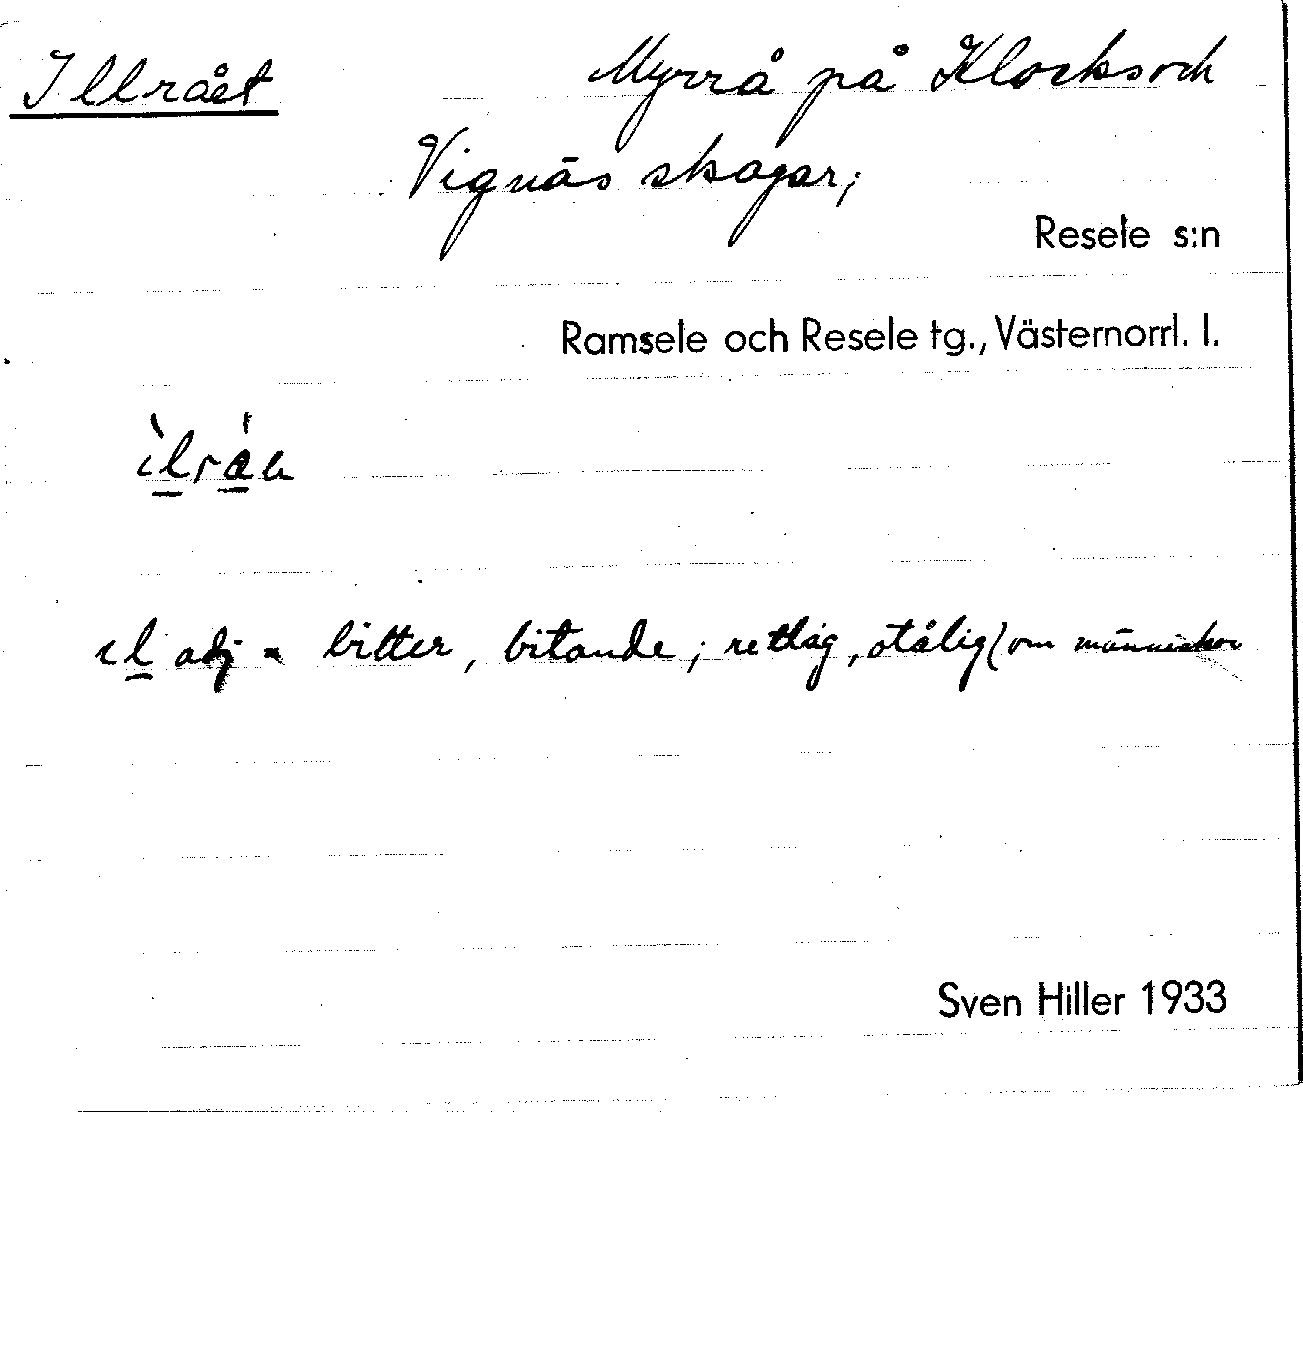 Illrået Myrrå på Klocks och
Vignäs skogar;
Resele s:n
Ramsele och Resele tg., Västernorrl. l.
ı̀lrá̱ıı
ıl adj = bitter, bitande; retlig, otålig (om människor
Sven Hiller 1933